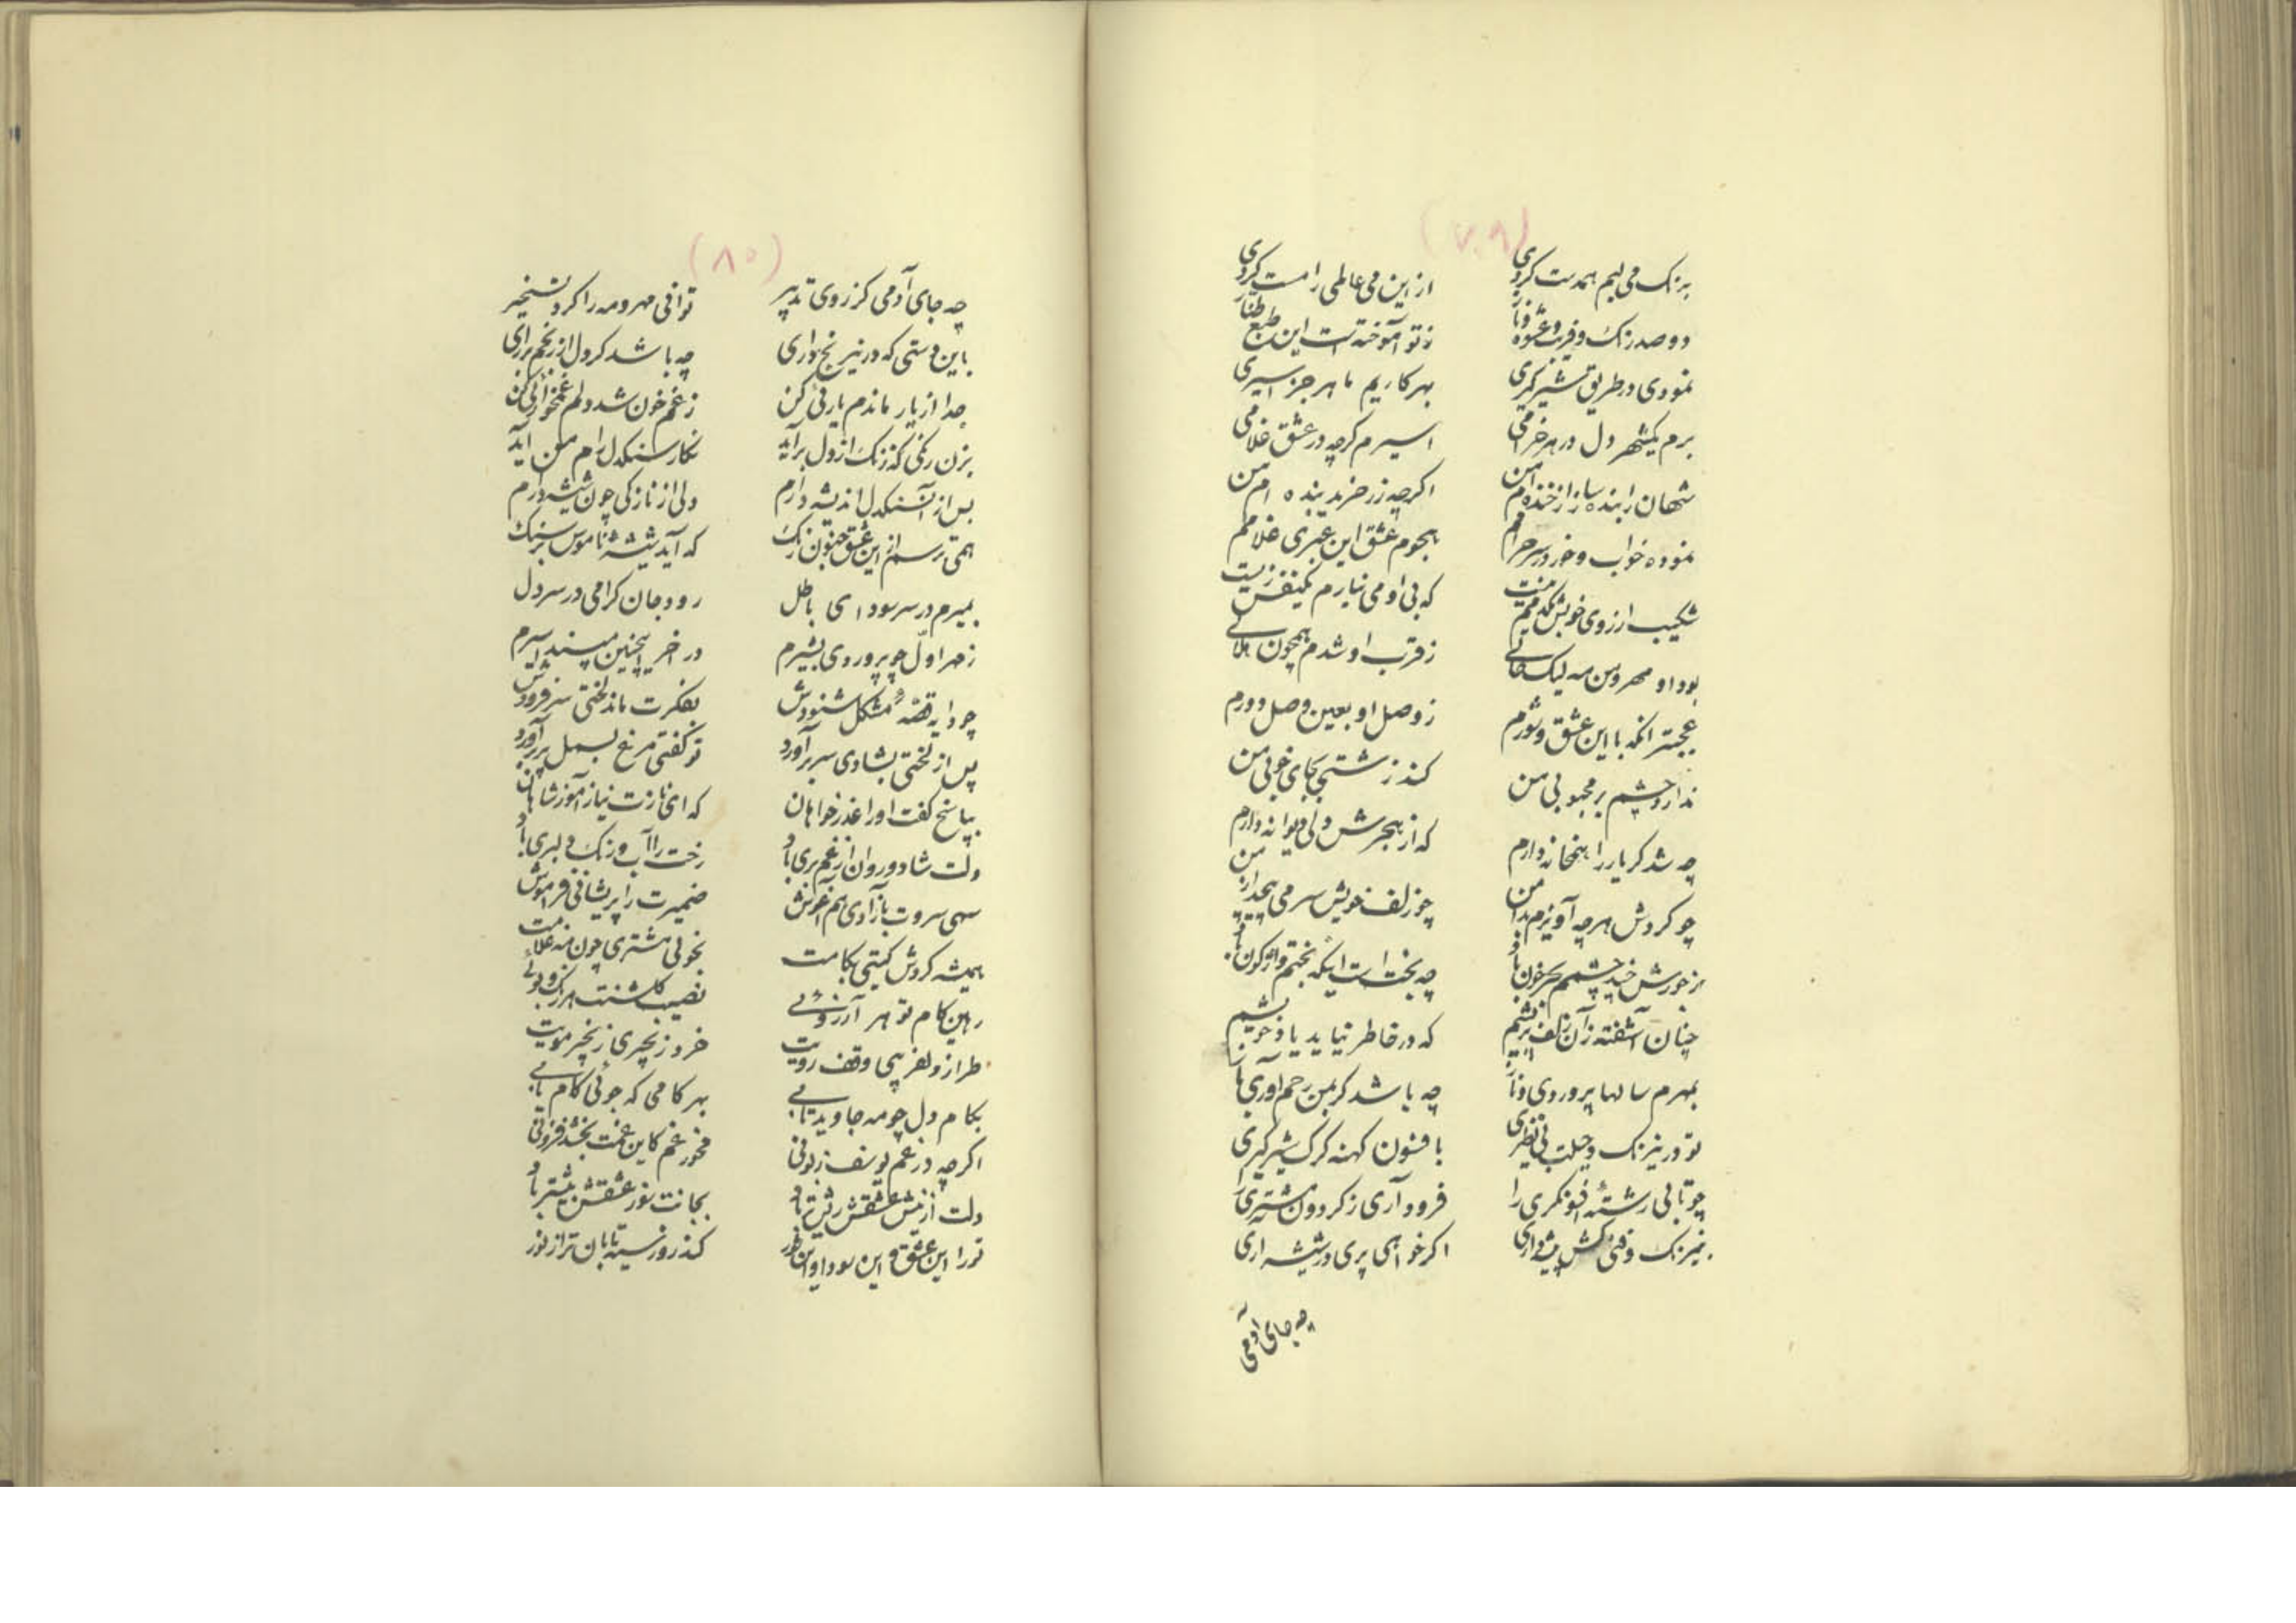 (۷۹)
به رنگ می لبم همدست کردی
از این می عالمی را مست کردی
دو صد رنگ و فریب و عشوه و ناز
ز تو آموخته است این طبع طناز
نمودی در طریق شیر گیری
بهر کاریم ماهر جز اسیری
برم یکشهر دل در هر خرامی
اسیرم گرچه در عشق غلامی
شهان را بنده ساز از خنده ام من
اگرچه زر خرید بنده ام من
نموده خواب و خور در سر حرامم
هجوم عشق این عبری غلامم
شکیب از روی خوبش یکدمم نیست
که بی او می نیارم یکنفس زیست
بود او مهر و من مه لیک حالی
ز قرب او شدم همچون هلالی
عجبتر انکه با این عشق و شورم
ز وصل او بعین وصل دورم
ندارد چشم بر محبوبی من
کند زشتی بجای خوبی من
چه شد گر یار را همخانه دارم
که از هجرش دلی دیوانه دارم
چو گردش هرچه آویزم بدامن
چو زلف خویش سر می پیچد از من
ز خورش خید چشمم پر خون باد
چه بخت است اینکه بختم واژگون باد
چنان آشفته زآن زلف پریشم
که در خاطر نیاید یاد خویشم
بمهرم سالها پروردی و ناز
چه باشد گر بمن رحم آوری باز
تو در نیرنگ و حیلت بی نظیری
بافسون کهنه گرگ شیر گیری
چو تابی رشتهٔ افسونگری را
فرود آری ز گردون مشتری را
نیرنگ و فنی کش پیشه داری
اگر خواهی پری در شیشه اری
چه جای آدمی
(۸۰)
چه جای آدمی کز روی تدبیر
توانی مهر و مه را کرد تسخیر
باین دستی که در نیرنج داری
چه باشد گر دل از رنجم برآری
جدا از یار ماندم یارئی کن
ز غم خون شد دلم غمخوارئی کن
بزن رنگی که زنگ از دل برآید
نگار سنگدل رام من آید
بس از آن سنگدل اندیشه دارم
دلی از نازکی چون شیشه دارم
همی ترسم از این عشق جنون رنگ
که آید شیشهٔ ناموس بر سنگ
بمیرم در سر سودای باطل
رود جان گرامی در سر دل
ز مهر اول چو پروردی بشیرم
در اخر اینچنین مپسند اسیرم
چو دایه قصهٔ مشکل شنودش
بفکرت ماند لختی سر فرودش
پس از لختی بشادی سر برآورد
تو گفتی مرغ بسمل پر برآورد
بپاسخ گفت او را عذر خواهان
که ای نازت نیاز آموز شاهان
دلت شاد و روان از غم بری باد
رخت را آب و رنگ دلبری باد
سهی سروت بازادی هم آغوش
ضمیرت را پریشانی فراموش
همیشه گردش گیتی بکامت
بخوبی مشتری چون مه غلامت
رهین کام تو هر آرزوئی
نصیب گلشنت هر رنگ و بوئی
طراز دلفریبی وقف رویت
خرد زنجیری زنجیر مویت
بکام دل چو مه جاوید تابی
بهر کامی که جوئی کام یابی
اگرچه در غم یوسف زبونی
مخور غم کاین غمت بخشد فزونی
دلت از نیش عشقش ریش تر باد
بجانت نور عشقش بیشتر باد
ترا این عشق و این سودا و این طور
کند روزی سیه تابان تر از نور